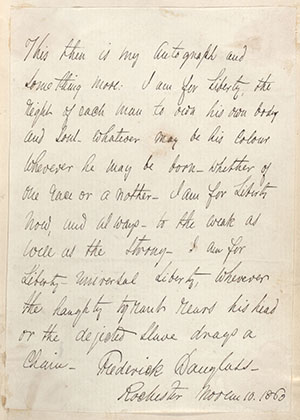 This then is my Autograph and
Something more: I am for Liberty, the
right of each man to own his own body
and Soul whatever may be his colour
wherever he may be born – whether of
one race or a nother – I am for Liberty
now, and always – to the weak as
well as the strong – I am for
Liberty – Universal Liberty, wherever
the haughty tyrant rears his head
or the dejected slave drags a
chain – Frederick Douglass –
Rochester Novem 10. 1860